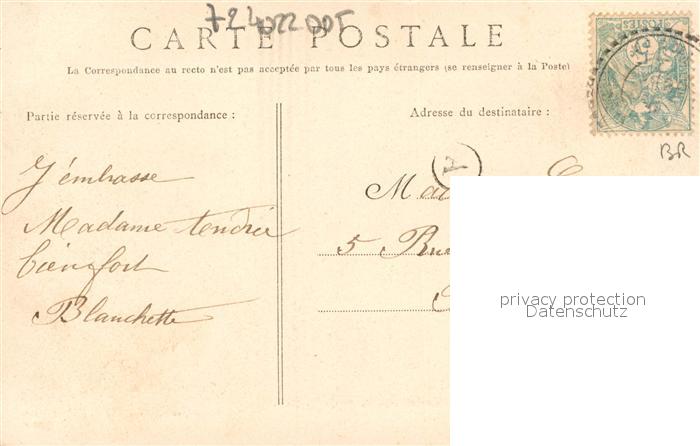 72402200T
CARTE POSTALE
La Correspondance au recto n'est pas acceptée par tous les pays étrangers (se renseigner à la Poste)
Partie réservée à la correspondance :
Adresse du destinataire :
POSTES
BR
A
J'embrasse
Madame
bien fort
Blanchette
5 Rue
privacy protection
Datenschutz